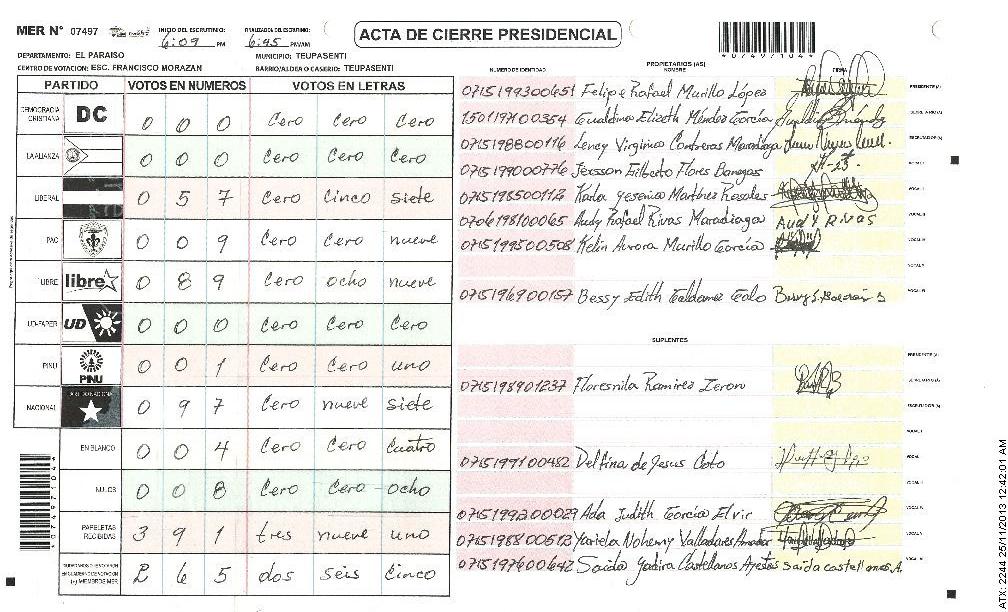 MER N° 07497 INICIO DEL ESCRUTINIO: 6:09 PM FINALIZACION DEL ESCRUTINIO: 6:45 PM/AM
ACTA DE CIERRE PRESIDENCIAL
*07497104*
DEPARTAMENTO: EL PARAISO MUNICIPIO: TEUPASENTI
CENTRO DE VOTACION: ESC. FRANCISCO MORAZAN BARRIO/ALDEA O CASERIO: TEUPASENTI
PARTIDO VOTOS EN NUMEROS VOTOS EN LETRAS
DEMOCRACIA CRISTIANA DC 0 0 0 Cero Cero Cero
LA ALIANZA 0 0 0 Cero Cero Cero
LIBERAL 0 5 7 Cero Cinco Siete
PAC 0 0 9 Cero Cero nueve
LIBRE libre 0 8 9 Cero ocho nueve
UD-FAPER UD 0 0 0 Cero Cero Cero
PINU PINU 0 0 1 Cero Cero uno
NACIONAL 0 9 7 Cero nueve Siete
EN BLANCO 0 0 4 Cero Cero Cuatro
NULOS 0 0 8 Cero Cero ocho
PAPELETAS RECIBIDAS 3 9 1 tres nueve uno
2 6 5 dos seis Cinco
*07497104*
PROPIETARIOS (AS)
NUMERO DE IDENTIDAD NOMBRE FIRMA
0715199300651 Felipe Rafael Murillo López PRESIDENTE (A)
1501197100354 Gualdina Elizeth Méndez García SECRETARIO (A)
0715198800116 Lency Virginia Contreras Maradiaga ESCRUTADOR (A)
0715199000776 Jersson Filberto Flores Banegas VOCAL I
0715198500112 Karla Yesenia Martínez Rosales VOCAL II
0706198100065 Audy Rafael Rivas Maradiaga Audy Rivas VOCAL III
0715199500508 Kelin Aurora Murillo García VOCAL IV
VOCAL V
0715196900157 Bessy Edith Galdamez Galo VOCAL VI
SUPLENTES
PRESIDENTE (A)
0715198901237 Floresmila Ramirez Zeron SECRETARIO (A)
ESCRUTADOR (A)
VOCAL I
0715199100482 Delfina de Jesus Coto VOCAL
0715199200029 Ada Judith García Elvir
0715198800503 Yariela Nohemy Valladares Amador
0715197600642 Saida Yadira Castellanos saida castellanos A.
ATX: 2244 25/11/2013 12:42:01 AM